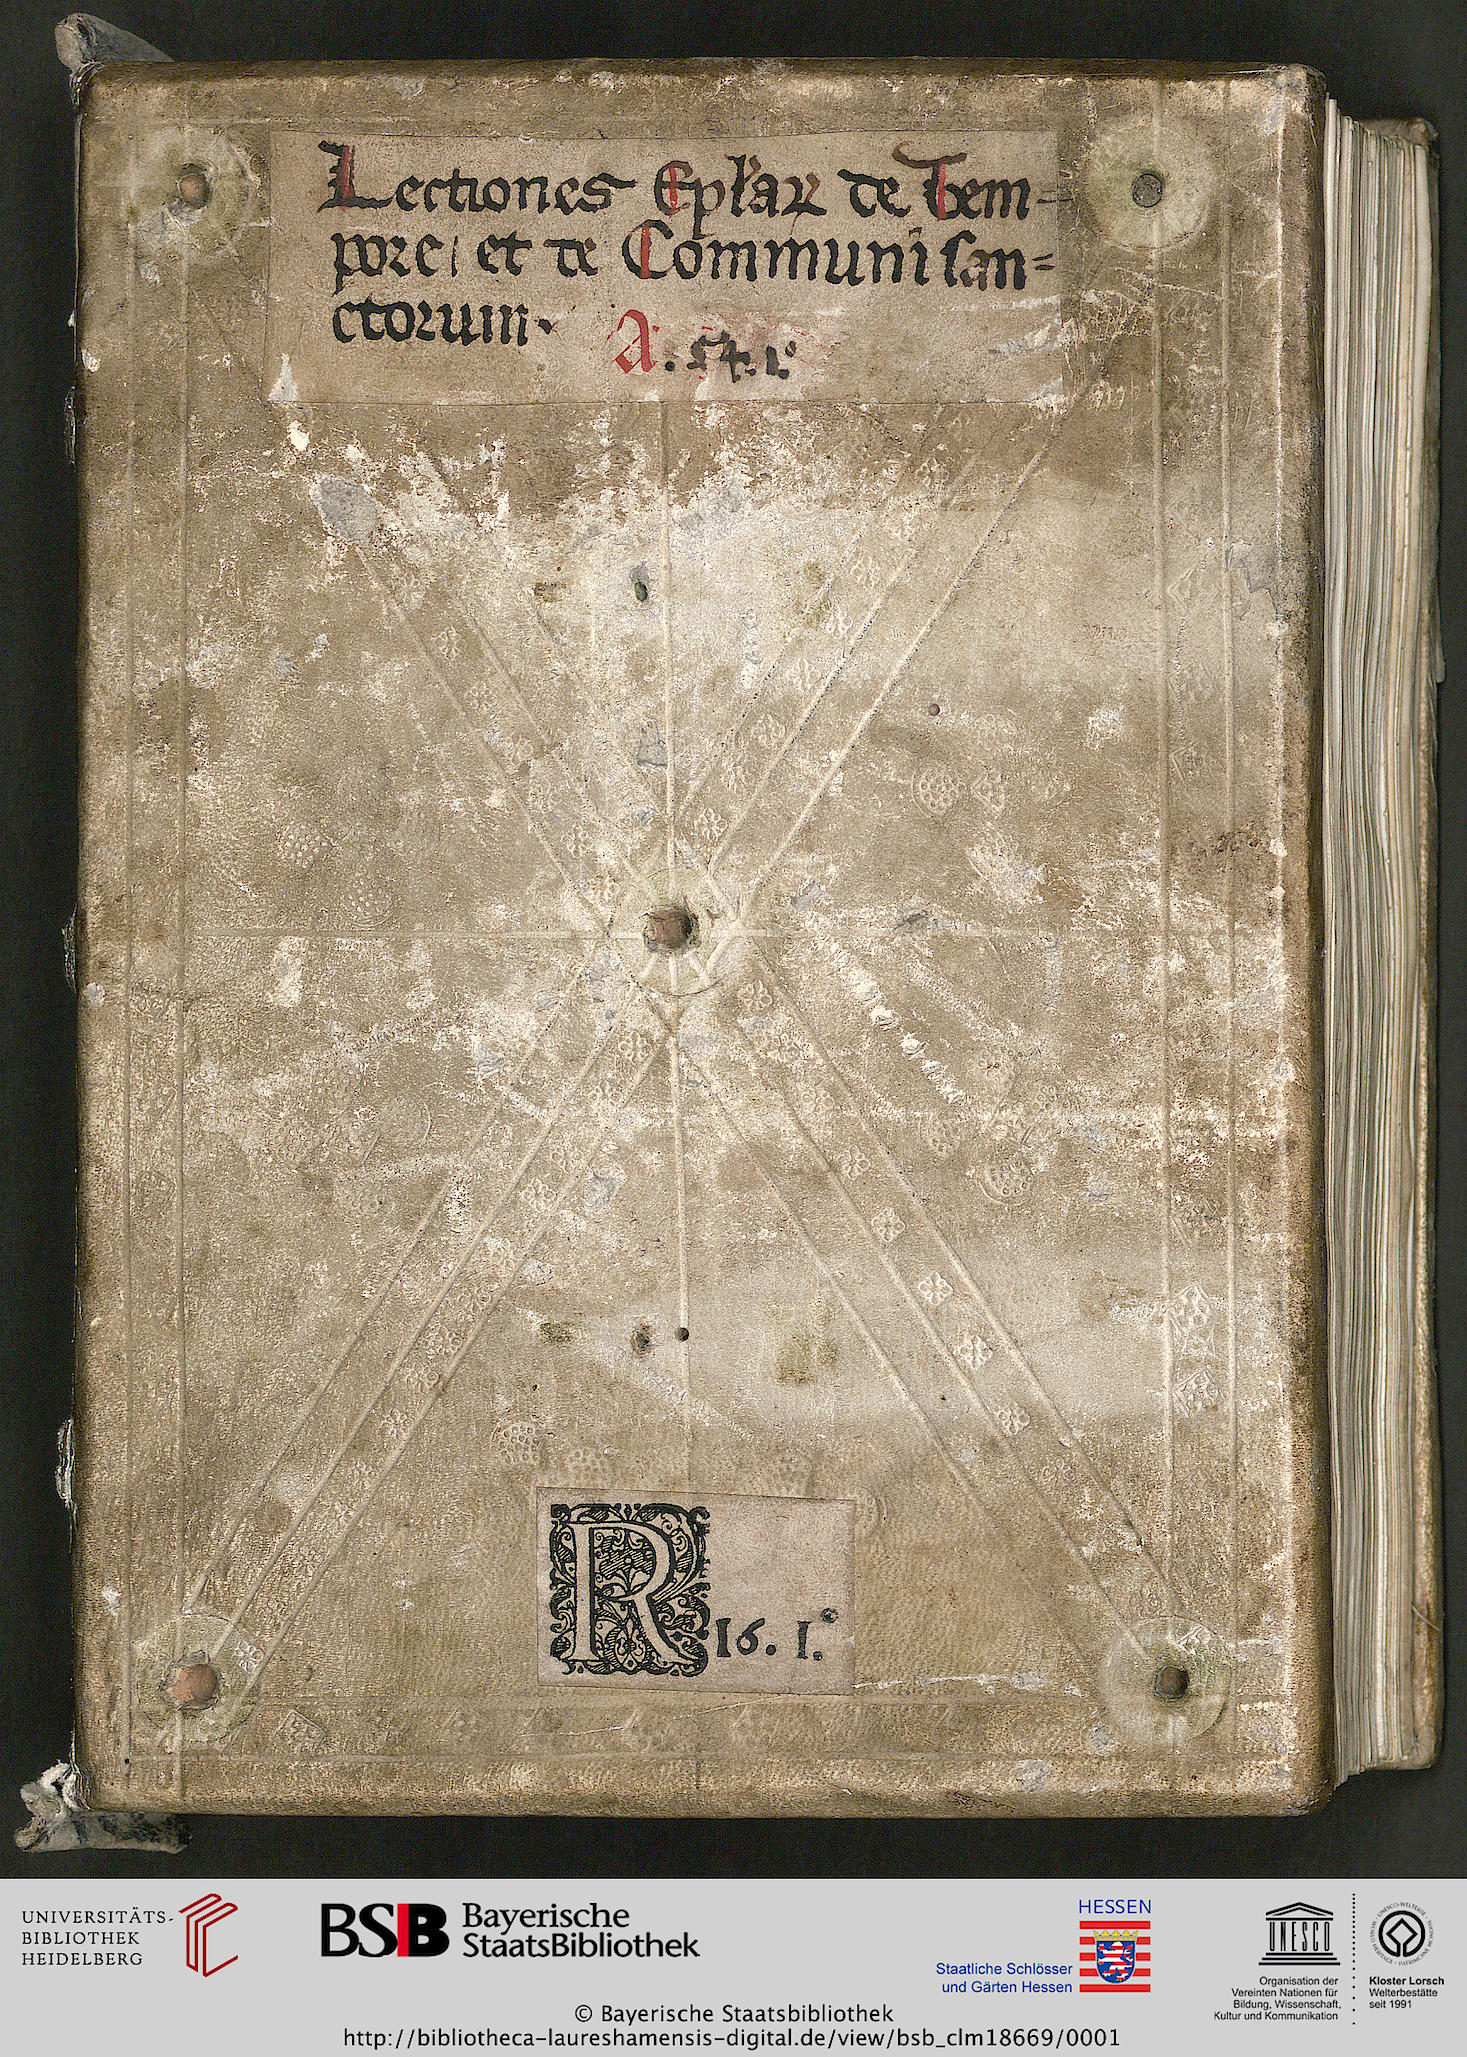 Lectiones Ep̃lar de Tem-
pore et de Communi san=
ctorum.
A. 54. 1.°
R 16. 1.°
UNIVERSITÄTS-
BIBLIOTHEK
HEIDELBERG
BSB Bayerische
StaatsBibliothek
HESSEN
Staatliche Schlösser
und Gärten Hessen
UNESCO
Organisation der
Vereinten Nationen für
Bildung, Wissenschaft,
Kultur und Kommunikation
Kloster Lorsch
Welterbestätte
seit 1991
© Bayerische Staatsbibliothek
http://bibliotheca-laureshamensis-digital.de/view/bsb_clm18669/0001